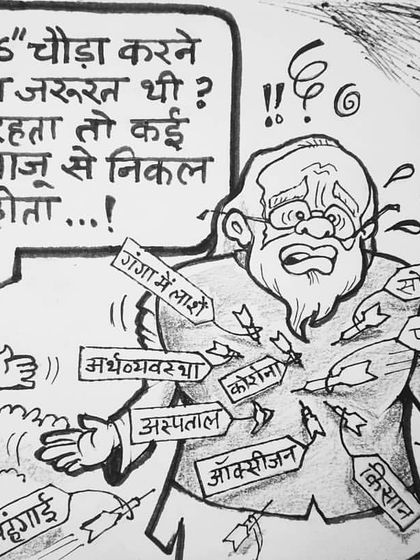 चौड़ा करने
जरूरत थी ?
रहता तो कई
से निकल
होता...!
गंगा में लाशें
अर्थव्यवस्था
कोरोना
अस्पताल
ऑक्सीजन
किसान